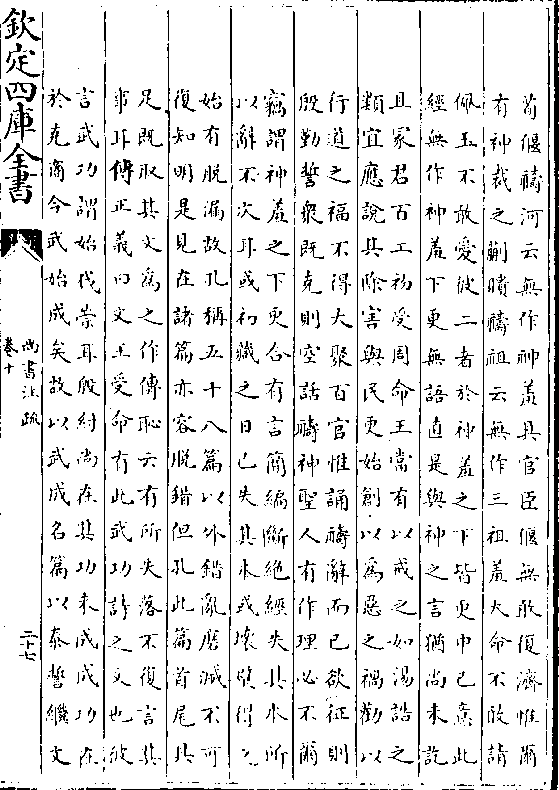 荀偃禱河云無作神羞具官臣偃無敢復濟惟爾
有神裁之蒯瞶禱祖云無作三祖羞大命不敢請
佩玉不敢愛彼二者於神羞之下皆更申已意此
經無作神羞下更無語直是與神之言猶尚未訖
且冢君百工初受周命王當有以戒之如湯誥之
類宜應說其除害與民更始創以為惡之禍勸以
行道之福不得大聚百官惟誦禱辭而已欲征則
殷勤誓衆既克則空話禱神聖人有作理必不爾
竊謂神羞之下更合有言簡編斷絕經失其本所
以辭不次耳或初藏之日已失其本或壞壁得之
始有脫漏故孔稱五十八篇以外錯亂磨滅不可
復知明是見在諸篇亦容脫錯但孔此篇首尾具
足既取其文為之作傳恥云有所失落不復言其
事耳傳正義曰文王受命有此武功詩之文也彼
言武功謂始伐崇耳殷紂尚在其功未成成功在
於克商今武始成矣故以武成名篇以泰誓繼文
欽定四庫全書
尚書注疏
卷十
二十七